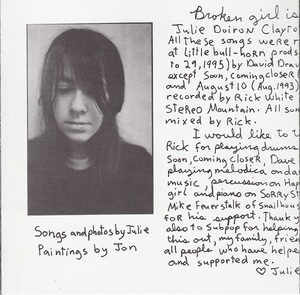 Broken girl is
Julie Doiron Clayto
All these songs were r
at little bull-horn prods
to 29, 1993) by David Dra
except Soon, coming closer (
and August 10 (Aug. 1993)
recorded by Rick White
Stereo Mountain. All son
mixed by Rick.
I would like to
Rick for playing drums
Soon, Coming Closer, Dave
playing melodica on da
music, percussion on Hap
girl and piano on Sorry St
Mike Feuerstalk of Snailhous
for his support. Thank y
also to Subpop for helping
this out, my family, frien
all people who have helpe
and supported me.
♡ Julie
Songs and photos by Julie
Paintings by Jon